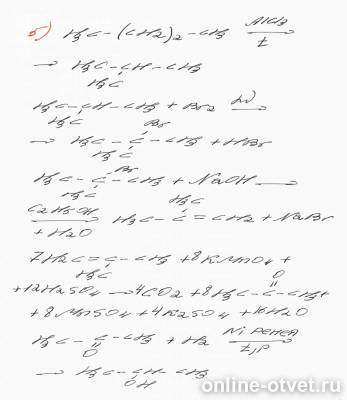 б) H3C-(CH2)2-CH3 AlCl3
t
→ H3C-CH-CH3
H3C
H3C-CH-CH3 + Br2 hν
H3C Br
→ H3C-C-CH3 + HBr
H3C
Br
H3C-C-CH3 + NaOH →
H3C H3C
C2H5OH H3C-C=CH2 + NaBr
+ H2O
7H2C=C-CH3 + 8KMnO4 +
H3C O
+12H2SO4 → 4CO2 + 8H3C-C-CH3 +
+ 8MnSO4 + 4K2SO4 + 16H2O
H3C-C-CH3 + H2 Ni Ренея
O t,p
→ H3C-CH-CH3
OH
online-otvet.ru